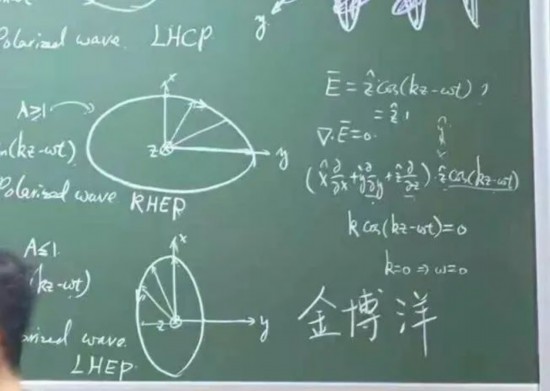 Polarized wave. LHCP.
y
A≥1
x
z
y
(kz-wt)
Polarized wave RHEP
A≤1
x
(kz-wt)
z
y
wave.
LHEP.
E̅ = ẑcos(kz-wt),
= ẑ,
∇·E̅=0.
(x̂ ∂/∂x + ŷ ∂/∂y + ẑ ∂/∂z)· ẑ cos(kz-wt)
k cos(kz-wt)=0
k=0 ⇒ w=0
金博洋